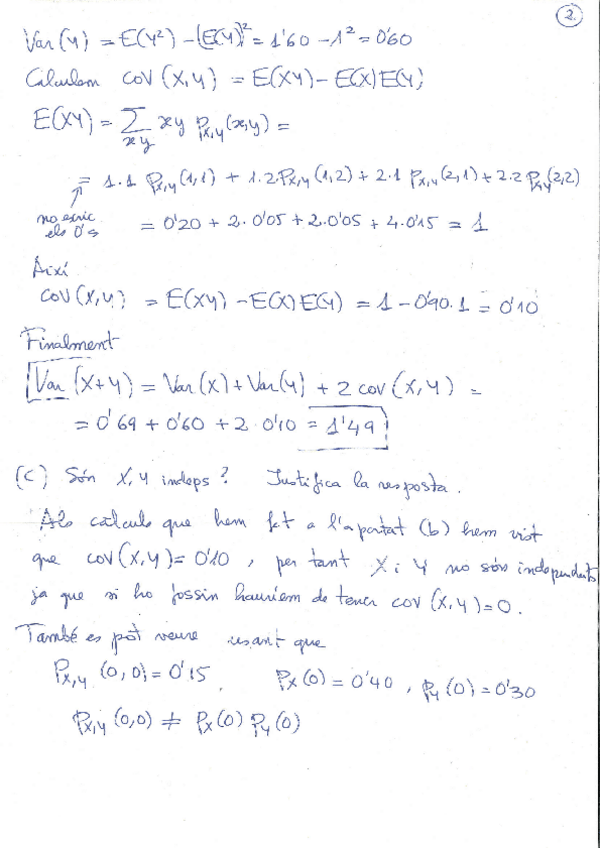 2.
Var(Y) = E(Y²) - (E(Y))² = 1'60 - 1² = 0'60
Calculem cov(X,Y) = E(XY) - E(X)E(Y)
E(XY) = ∑ xy P_{X,Y}(x,y) =
xy
= 1.1 P_{X,Y}(1,1) + 1.2 P_{X,Y}(1,2) + 2.1 P_{X,Y}(2,1) + 2.2 P_{X,Y}(2,2)
no escric
els 0's
= 0'20 + 2·0'05 + 2·0'05 + 4·0'15 = 1
Així
cov(X,Y) = E(XY) - E(X)E(Y) = 1 - 0'90.1 = 0'10
Finalment
Var(X+Y) = Var(X) + Var(Y) + 2 cov(X,Y) =
= 0'69 + 0'60 + 2·0'10 = 1'49
(c) Són X,Y indeps? Justifica la resposta.
Als càlculs que hem fet a l'apartat (b) hem vist
que cov(X,Y) = 0'10, per tant X i Y no són independents
ja que si ho fossin hauríem de tenir cov(X,Y)=0.
També es pot veure usant que
P_{X,Y}(0,0) = 0'15 P_X(0) = 0'40, P_Y(0) = 0'30
P_{X,Y}(0,0) ≠ P_X(0) P_Y(0)